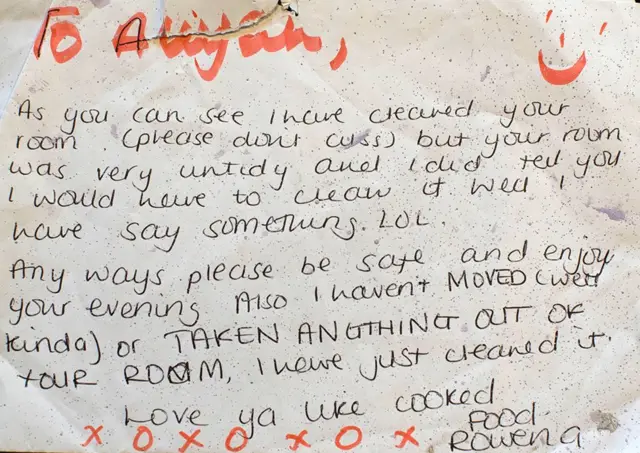 To Aaliyah,
As you can see I have cleared your
room. (please don't cuss) but your room
was very untidy and I did tell you
I would have to clean it well I
have say something. LOL.
Any ways please be safe and enjoy
your evening Also I haven't MOVED (well
kinda) or TAKEN ANYTHING OUT OF
YOUR ROOM, I have just cleaned it.
Love ya like cooked
food.
x o x o x o x Rowena